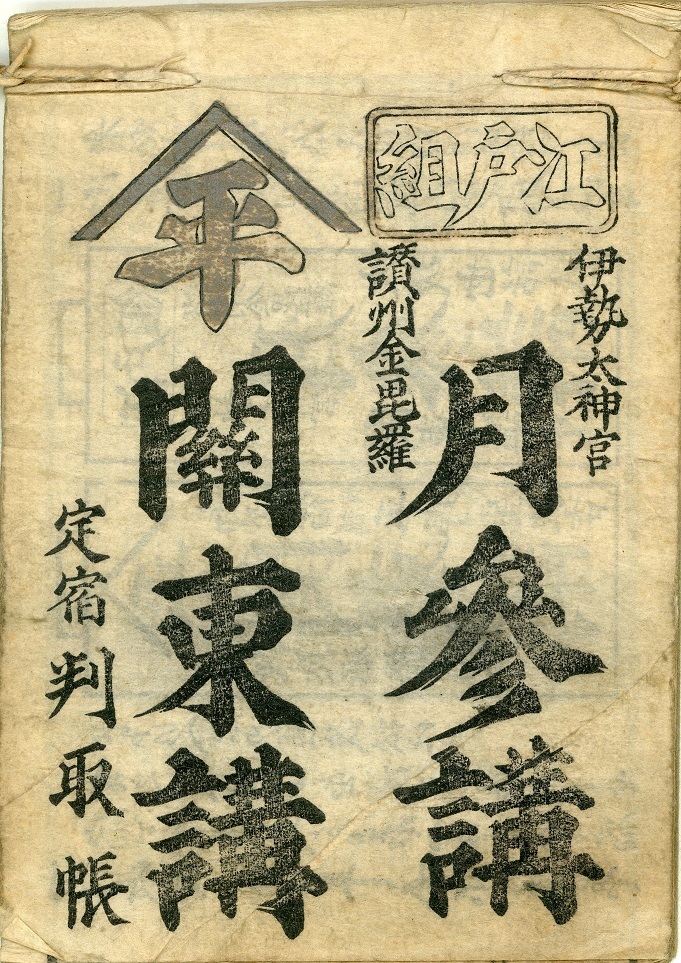 江戸組
伊勢太神宮
月參講
讃州金毘羅
平
關東講
定宿判取帳